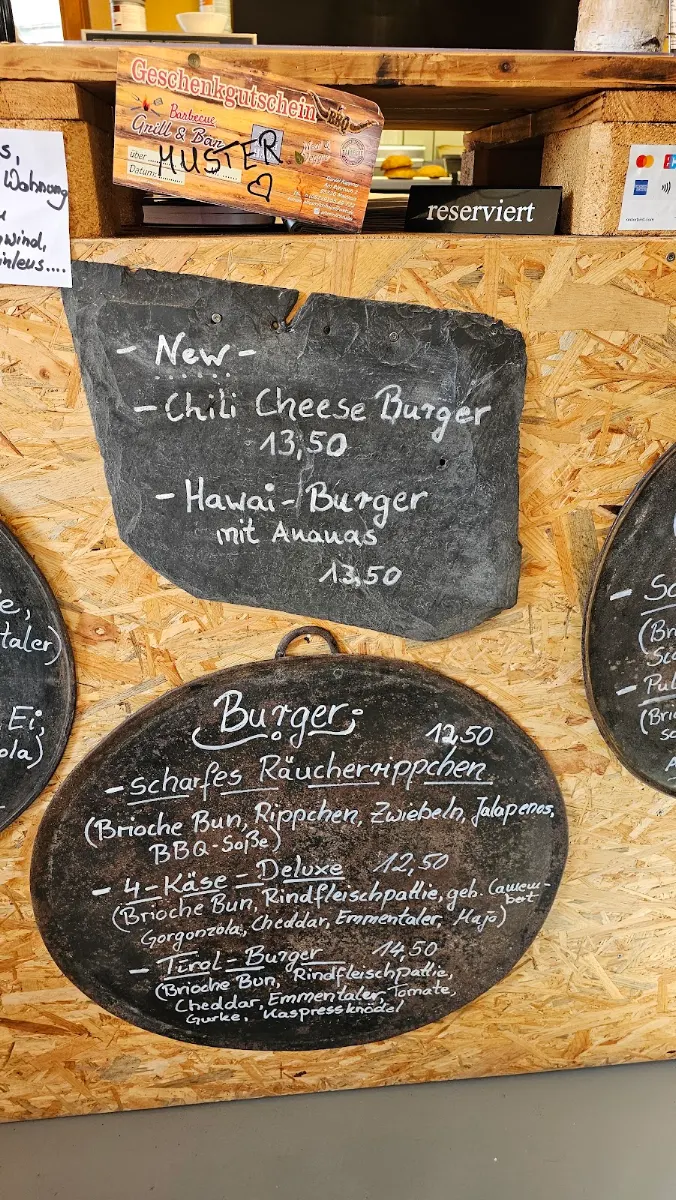 Geschenkgutschein
BBQ
Barbecue
Grill & Bar
über
MUSTER
Datum:
reserviert
s,
Wohnung
wind,
- New -
- Chili Cheese Burger
13,50
- Hawai-Burger
mit Ananas
13,50
Burger:
12,50
- scharfes Räucherrippchen
(Brioche Bun, Rippchen, Zwiebeln, Jalapenos,
BBQ-Soße)
- 4-Käse-Deluxe 12,50
(Brioche Bun, Rindfleischpattie, geb. Camem-
bert
Gorgonzola, Cheddar, Emmentaler, Majo)
- Tirol-Burger 14,50
(Brioche Bun, Rindfleischpattie,
Cheddar, Emmentaler, Tomate,
Gurke, Kaspressknödel
e,
taler)
Ei,
ola)
- Sc
(Br
- Pul
(Bri